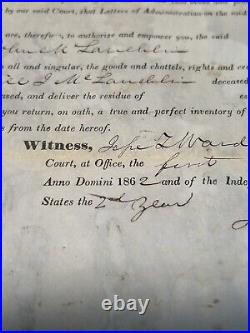 by our said Court, that Letters of Administration on the
are, therefore, to authorize and empower you, the said
Laughlin
all and singular, the goods and chattels, rights and cre
J McLaughlin deceased
sed, and deliver the residue of
you return, on oath, a true and perfect inventory of
from the date hereof.
Witness, Ward
Court, at Office, the first
Anno Domini 1862 and of the Inde
States the 2d Year